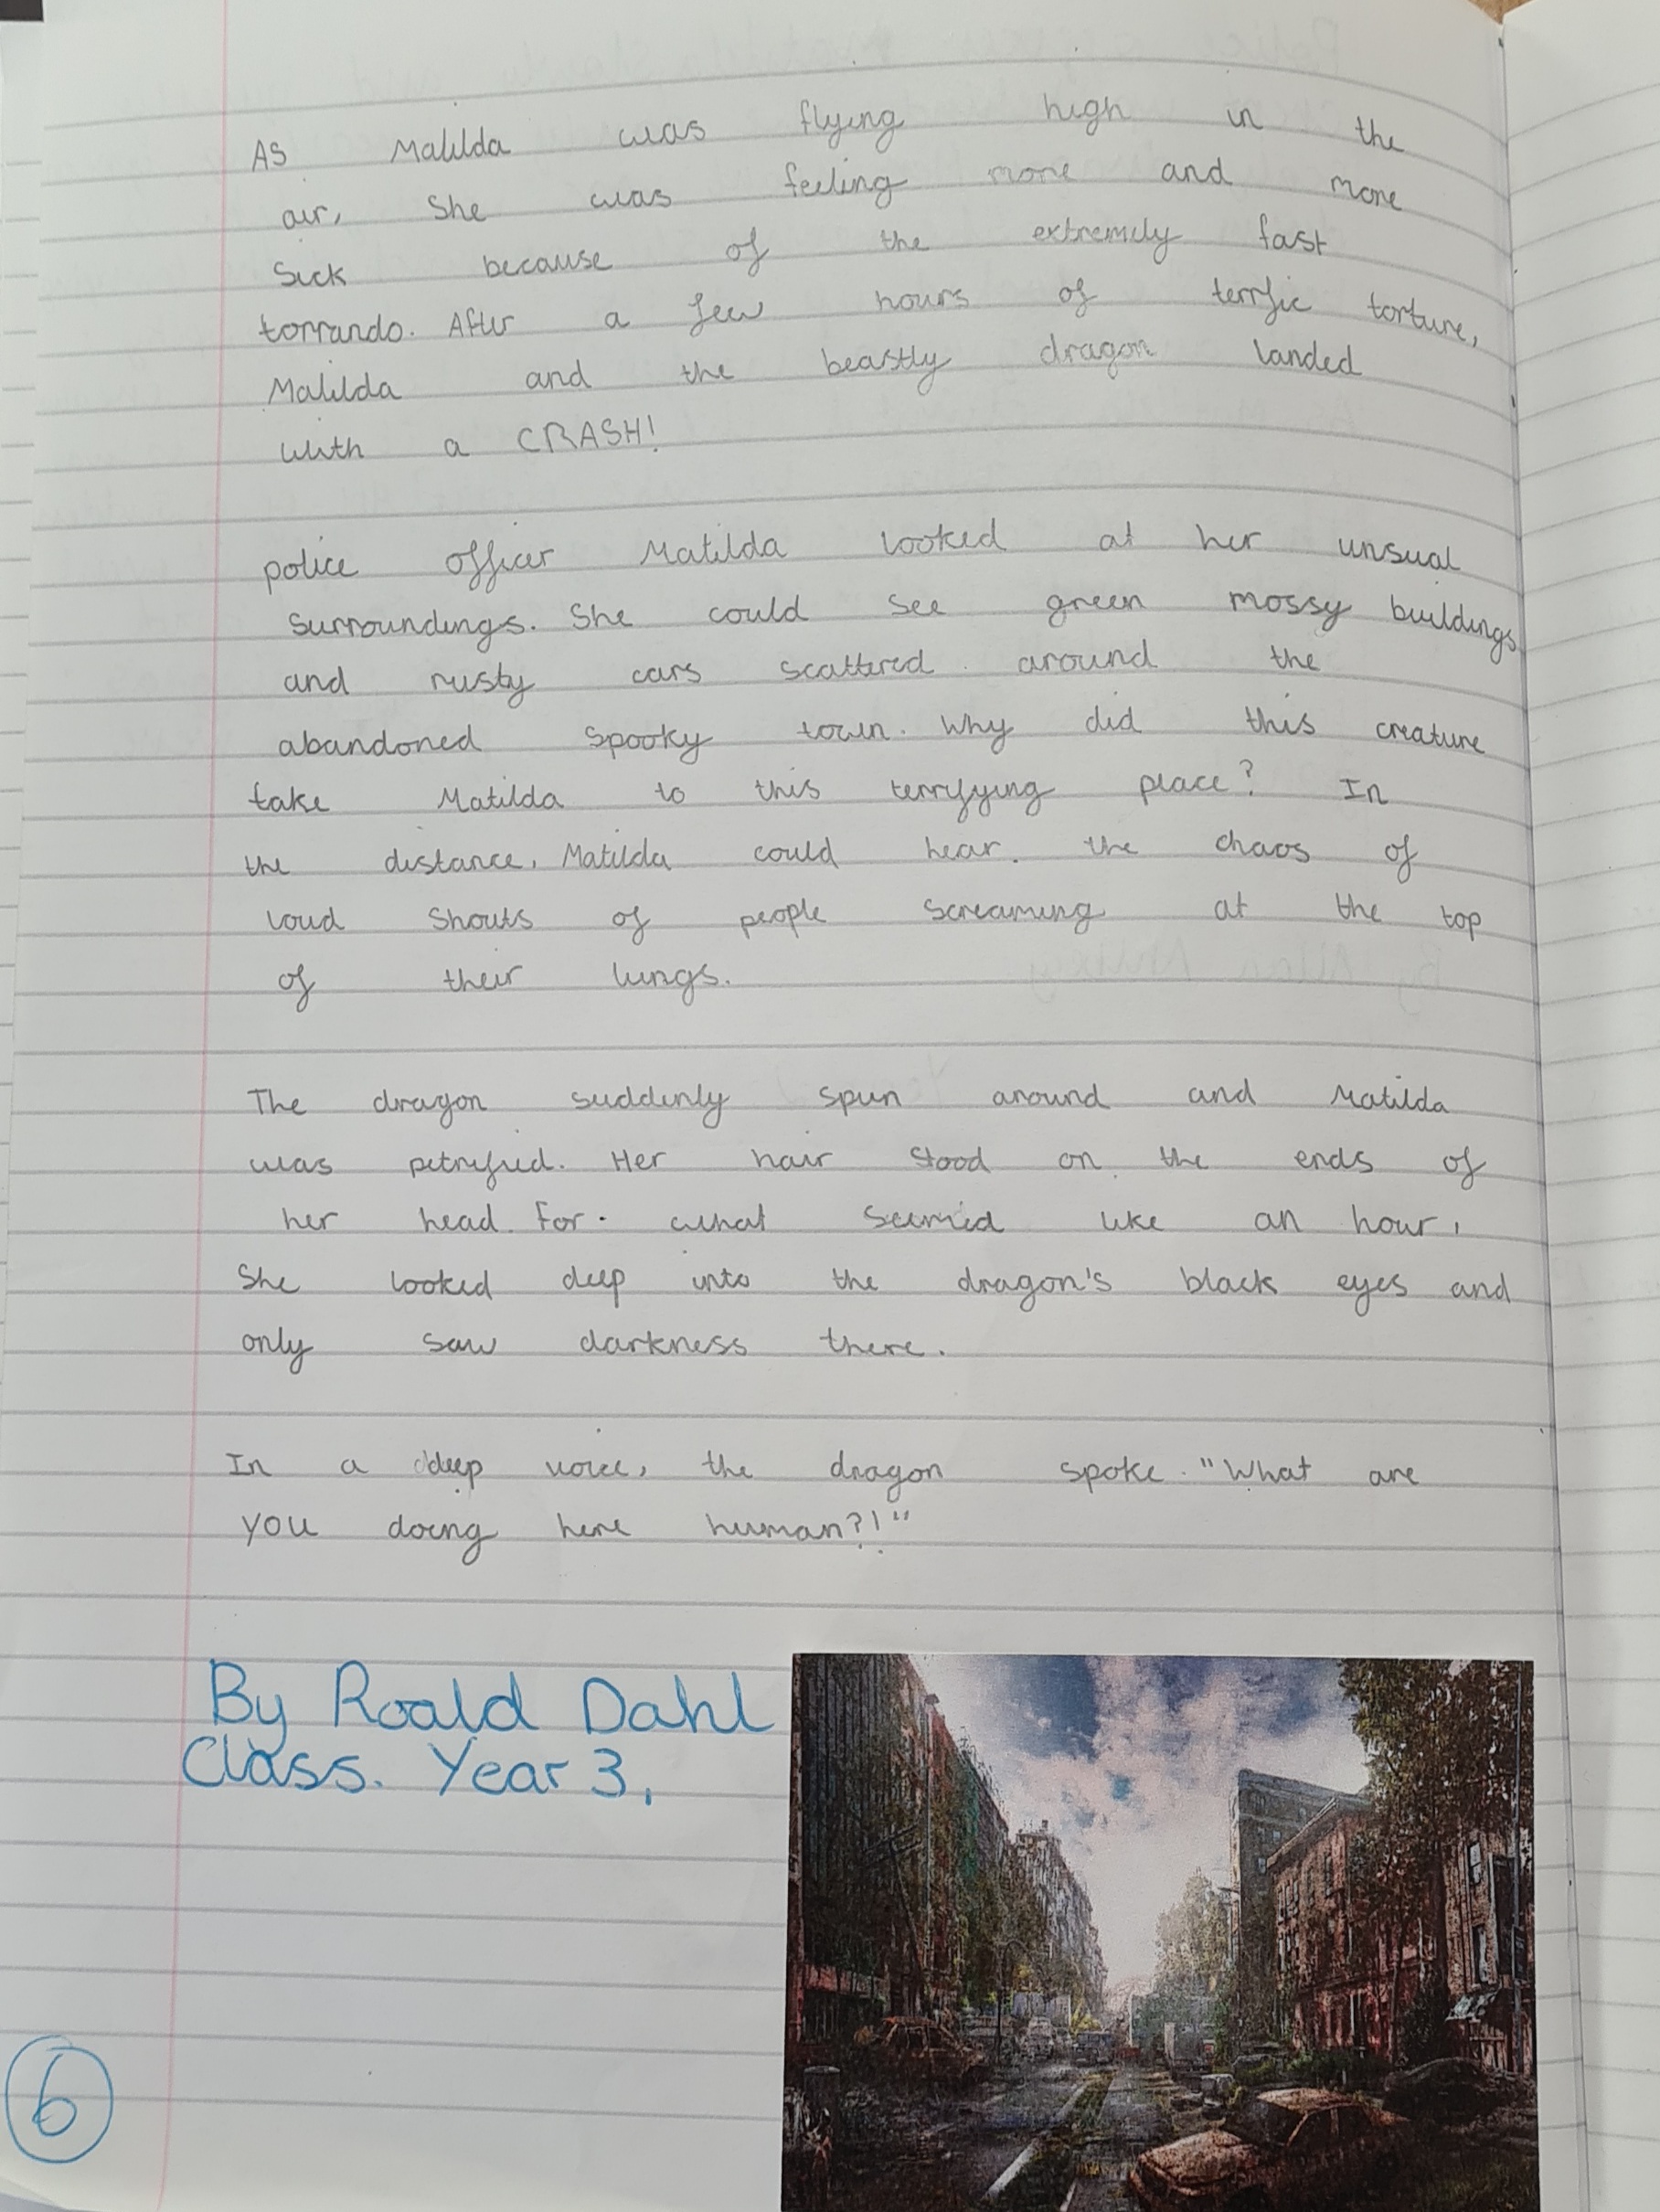 As Matilda was flying high in the
air, She was feeling more and more
Sick because of the extremely fast
torrando. After a few hours of terrfic torture,
Matilda and the beastly dragon landed
with a CRASH!
police officer Matilda looked at her unsual
Surroundings. She could see green mossy buildings
and rusty cars scattered around the
abandoned spooky town. Why did this creature
take Matilda to this terrifying place? In
the distance, Matilda could hear the chaos of
loud shouts of people screaming at the top
of their lungs.
The dragon suddenly spun around and Matilda
was petrified. Her hair stood on the ends of
her head. For what seemed like an hour,
She looked deep into the dragon's black eyes and
only saw darkness there.
In a deep voice, the dragon spoke. "What are
you doing here human?!"
By Roald Dahl
Class. Year 3.
6